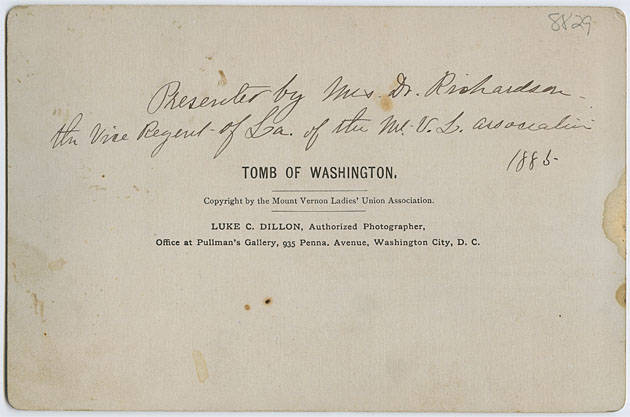 8829
Presented by Mrs Dr. Richardson
the Vice Regent of La. of the Mt. V. L. association
1885
TOMB OF WASHINGTON.
Copyright by the Mount Vernon Ladies' Union Association.
LUKE C. DILLON, Authorized Photographer,
Office at Pullman's Gallery, 935 Penna. Avenue, Washington City, D. C.